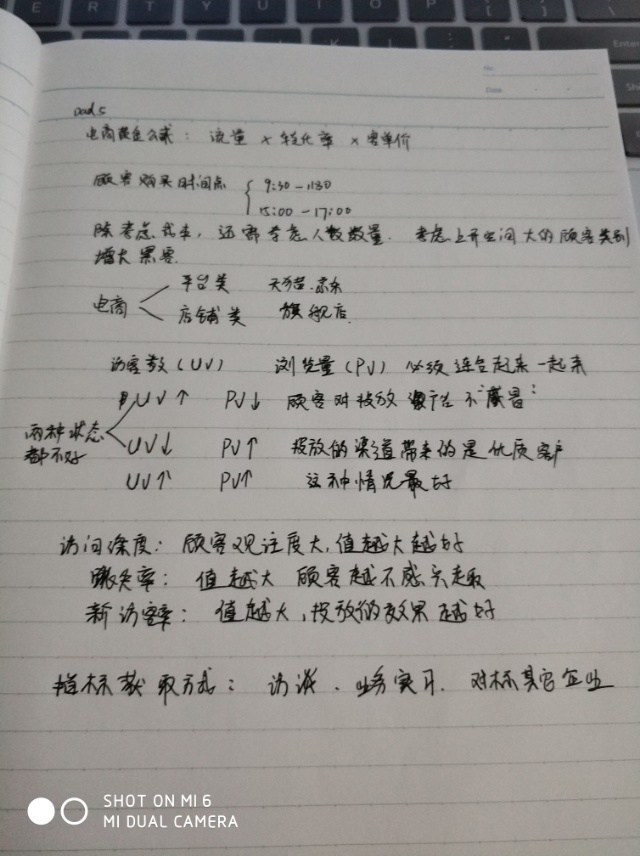 电商黄金公式：流量 × 转化率 × 客单价
顾客购买时间点 { 9:30-1130
15:00-17:00
除考虑 ，还需考虑人数数量．考虑上升空间大的顾客类别
增大 客
电商 平台类 天猫．京东
店铺类 旗舰店
访客数（UV） 浏览量（PV） 必须连合起来一起来
UV↑ PV↓ 顾客对投放 不感冒
两种状态
都不好
UV↓ PV↑ 投放的渠道带来的是优质客户
UV↑ PV↑ 这种情况最好
访问深度：顾客观注度大，值越大越好
跳失率：值越大 顾客越不感兴趣
新访客率：值越大，投放的效果越好
指标获取方式：访谈、业务实习．对标其它企业
SHOT ON MI 6
MI DUAL CAMERA